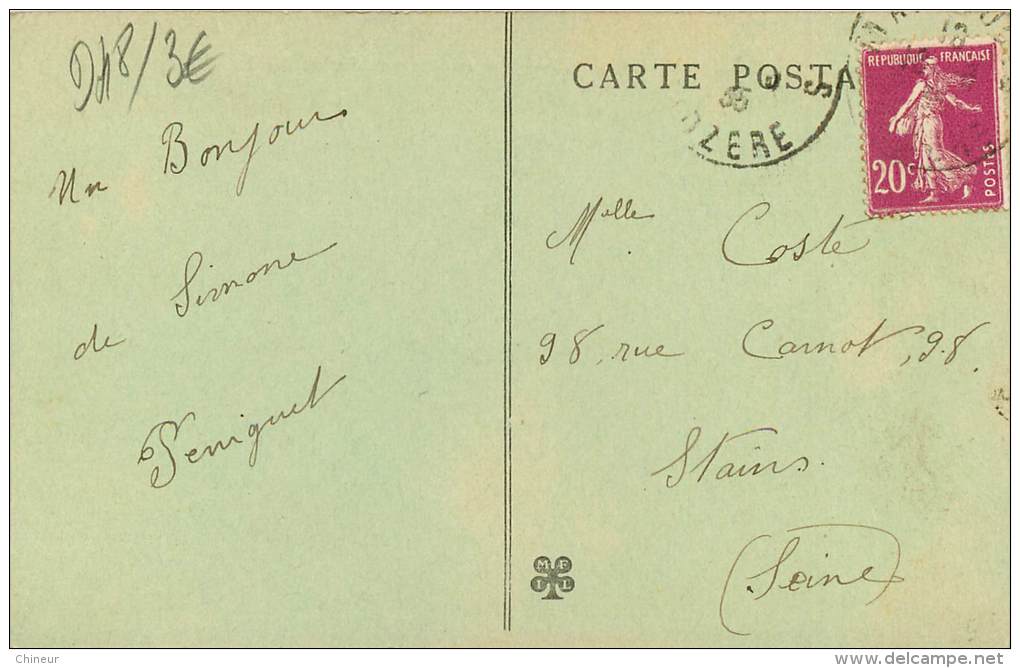 D48/3€
Un Bonjour
de Simone
Peniguet
CARTE POSTA
REPUBLIQUE FRANÇAISE
20c
POSTES
35
OZERE
Melle Coste
98, rue Carnot, 98
Stains
(Seine)
M F
I L
Chineur
www.delcampe.net